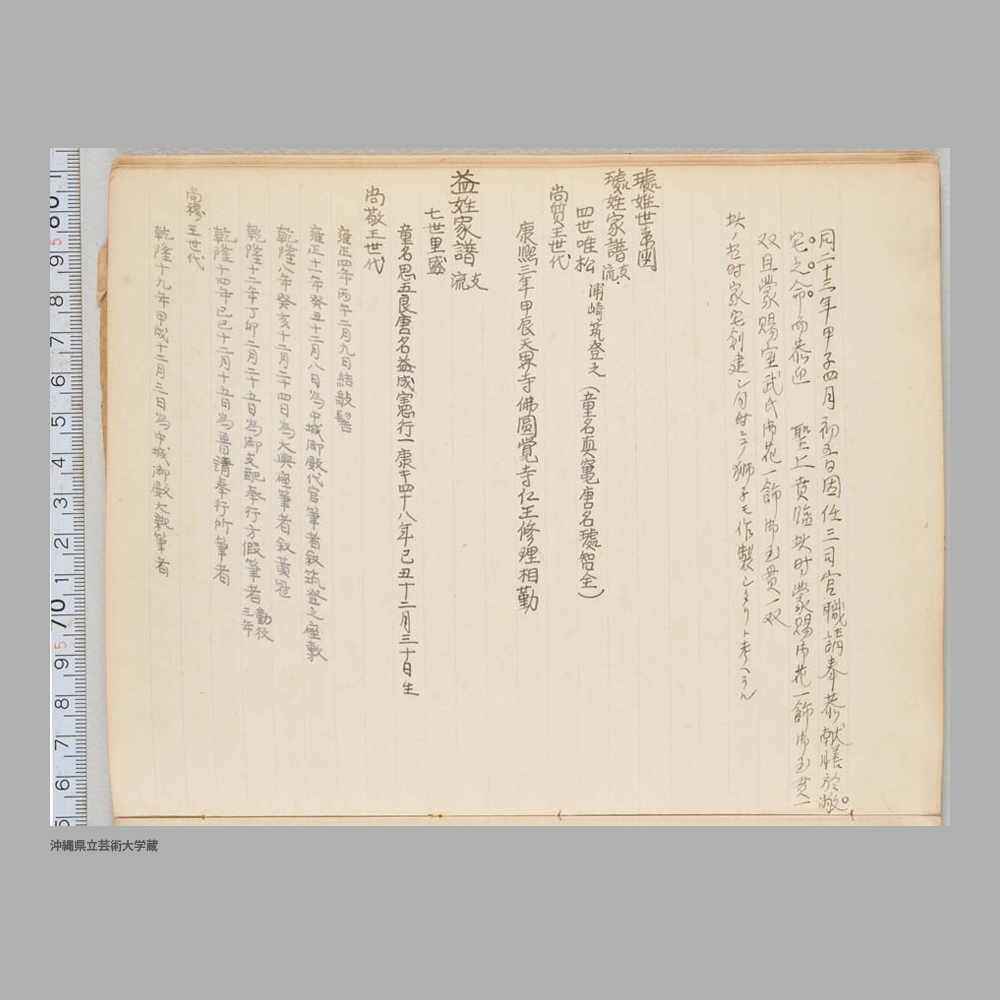 同二十三年甲子四月初五日因任三司官職請奉恭献膳於敝
宅之命而恭迎　聖上賁臨此时蒙賜御花一飾御玉貫一
双且蒙賜室武氏御花一飾御玉貫一双
此ノ右时家宅創建シ旬付ニテ獅子モ作製シタリト考ヘラル
璩姓世系図
璩姓家譜支流
四世唯松　浦崎筑登之（童名真竃唐名璩智全）
尚質王世代
康熙三年甲辰天界寺佛圓覚寺仁王修理相勤
益姓家譜支流
七世里盛
童名思五良唐名益成憲行一康熙四十八年己丑十二月三十日生
尚敬王世代
雍正四年丙午二月九日結敧髻
雍正十一年癸丑十二月八日為中城御殿代官筆者叙筑登之座敷
乾隆八年癸亥十二月二十四日為大與座筆者叙黄冠
乾隆十二年丁卯二月二十五日為御支配奉行方假筆者勤役三年
乾隆十四年己巳十二月十五日為普請奉行所筆者
尚穆王世代
乾隆十九年甲戌十二月三日為中城御殿大親筆者
沖縄県立芸術大学蔵